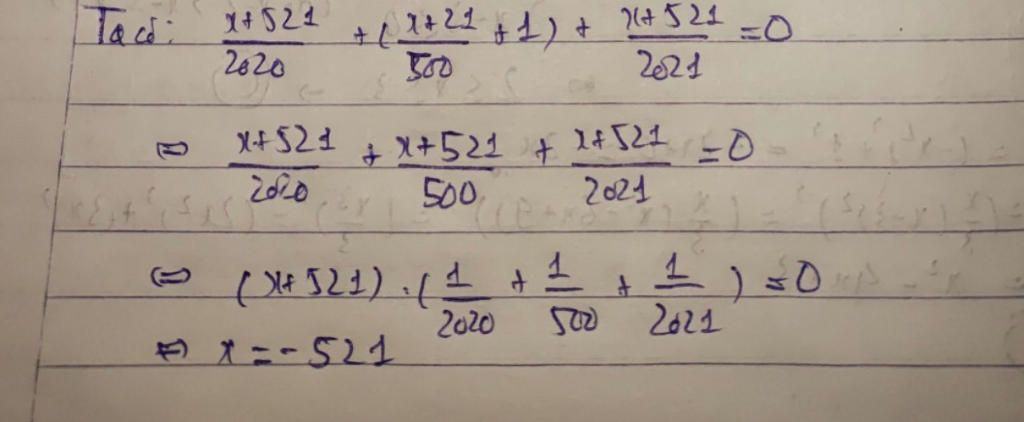 Ta có: \frac{x+521}{2020} + (\frac{x+21}{500} + 1) + \frac{x+521}{2021} = 0
⇔ \frac{x+521}{2020} + \frac{x+521}{500} + \frac{x+521}{2021} = 0
⇔ (x+521) . (\frac{1}{2020} + \frac{1}{500} + \frac{1}{2021}) = 0
⇔ x = -521